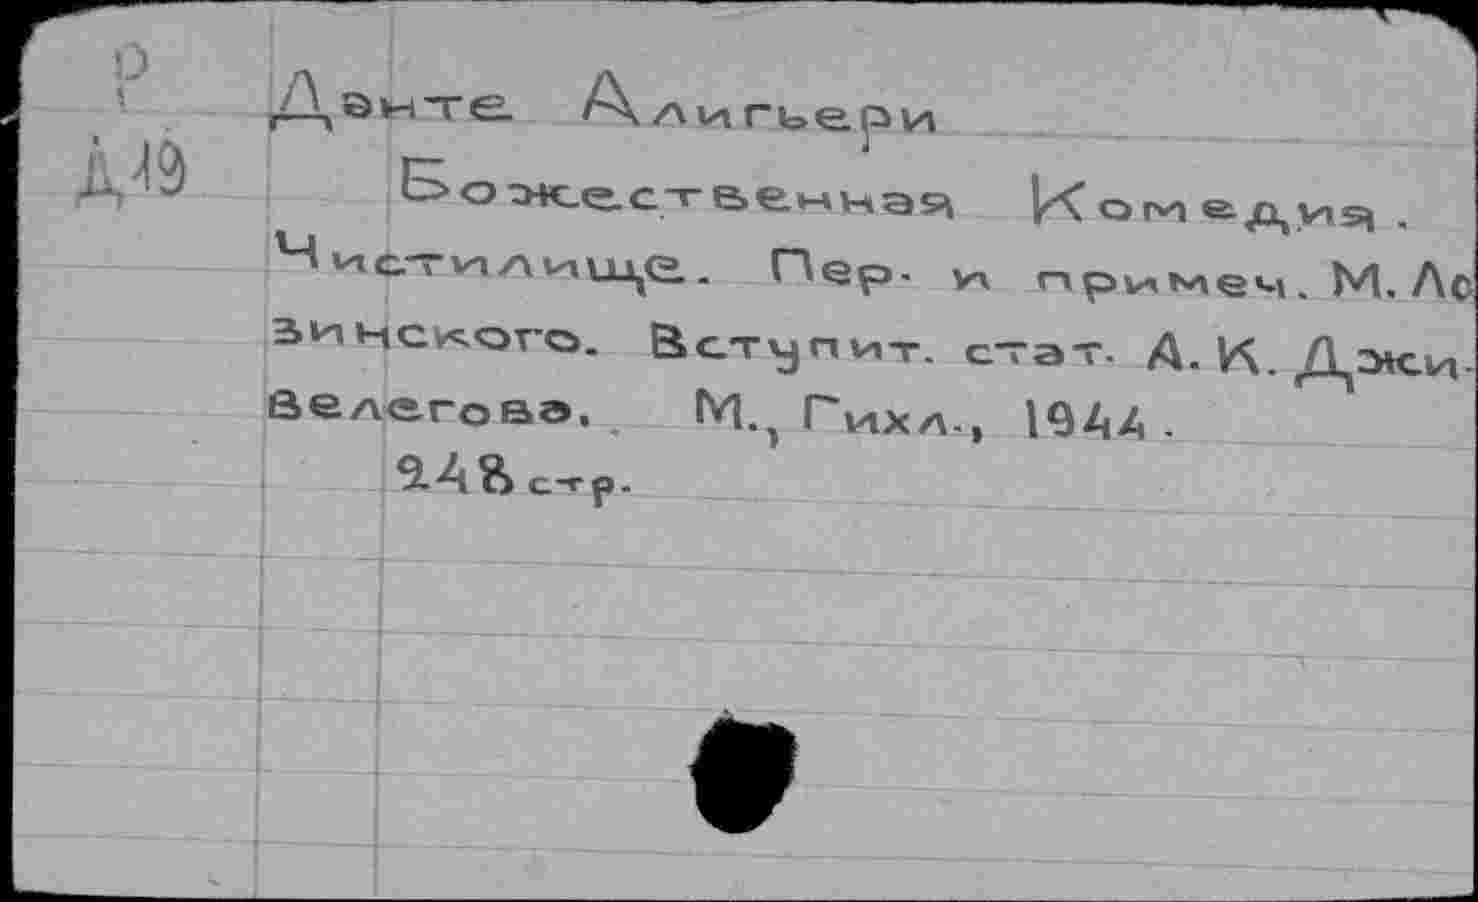 Р
Данте Алигьери
Д19
Божественная Комедия.
Чистилище. Пер. и примеч. М. Ло
зинского. Вступит. стат. А. К. Джи-
велегова. М., Гихл., 1944.
248 стр.